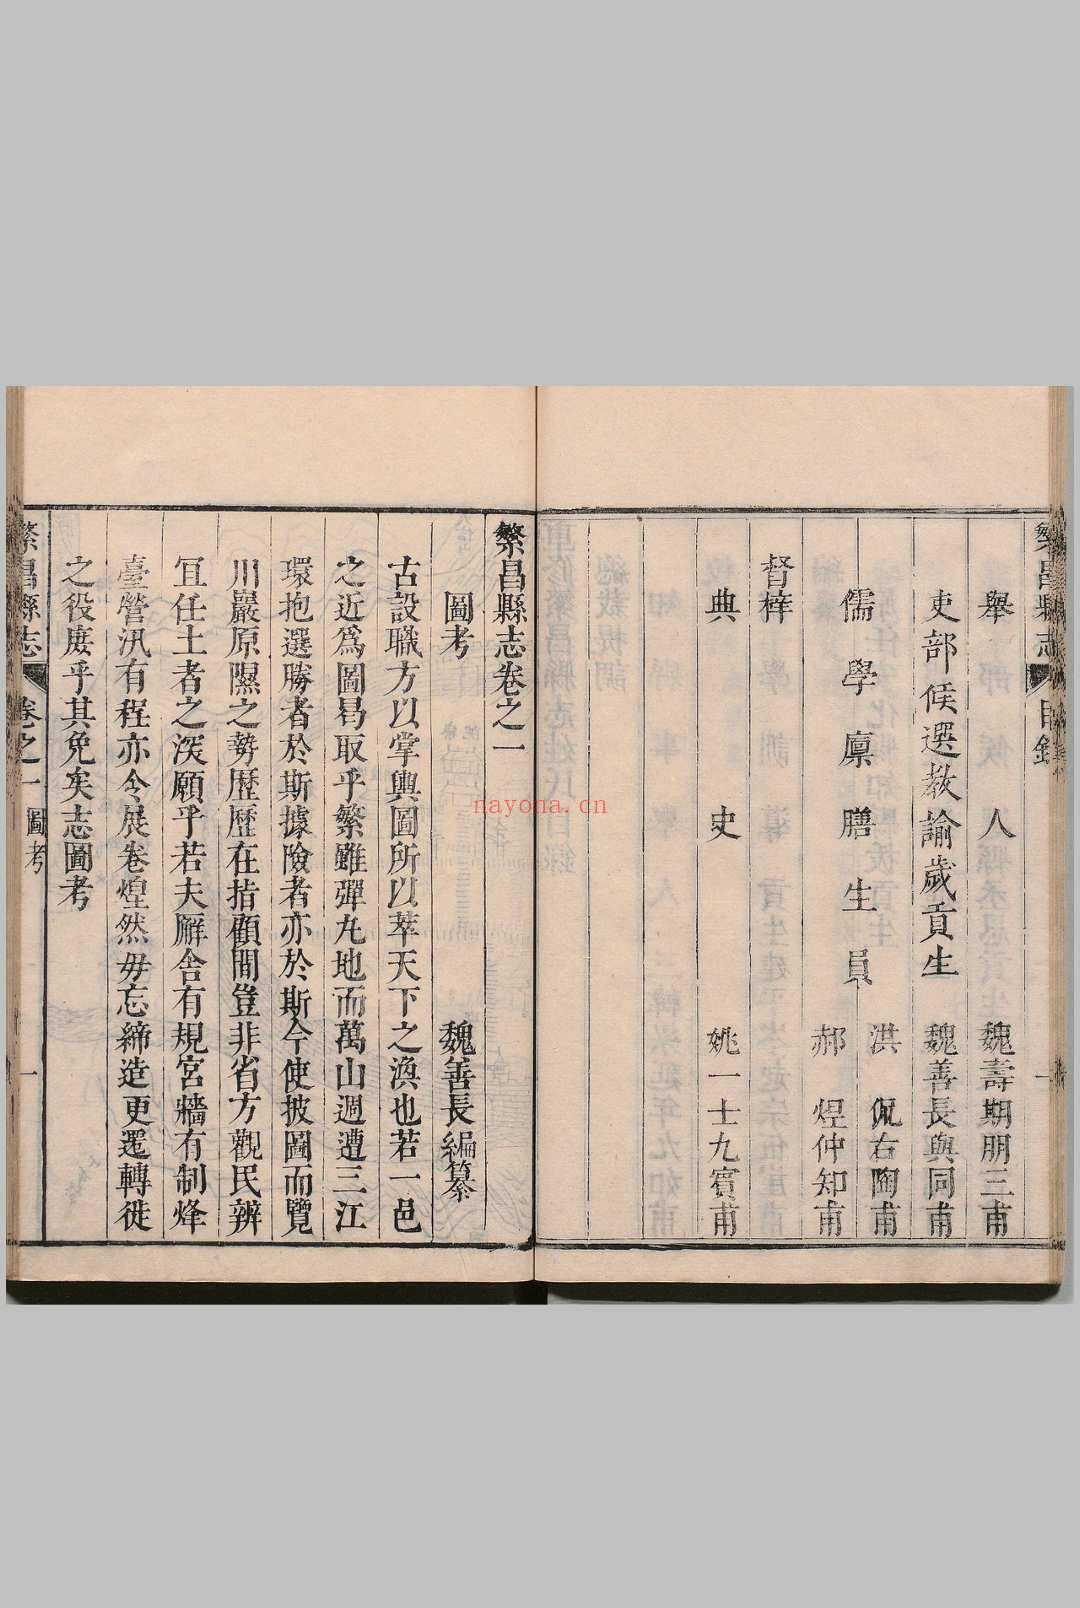 繁昌縣志 目錄 一
舉人 魏壽期朋三甫
吏部候選教諭歲貢生 魏善長與同甫
儒學廩膳生員 洪侃右陶甫
郝煜仲知甫
督梓
典史 姚一士九賓甫
繁昌縣志卷之一
圖考 魏善長編纂
古設職方以掌輿圖所以萃天下之渙也若一邑
之近爲圖曷取乎繁雖彈丸地而萬山週遭三江
環抱選勝者於斯據險者亦於斯今使披圖而覽
川巖原隰之勢歷歷在指顧間豈非省方觀民辨
宜任土者之深願乎若夫廨舍有規宮牆有制烽
臺營汛有程亦令展卷煌然毋忘締造更遷轉徙
之役庶乎其免矣志圖考
繁昌縣志 卷之一 圖考 一
nayona.cn